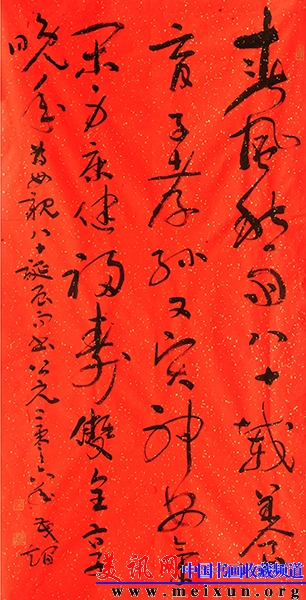 春风秋雨八十载养
育子孝孙又贤神安气
闲身康健福寿双全享
晚年 为母亲八十诞辰而书公元二零
美讯网
中国书画收藏频道
www.meixun.org